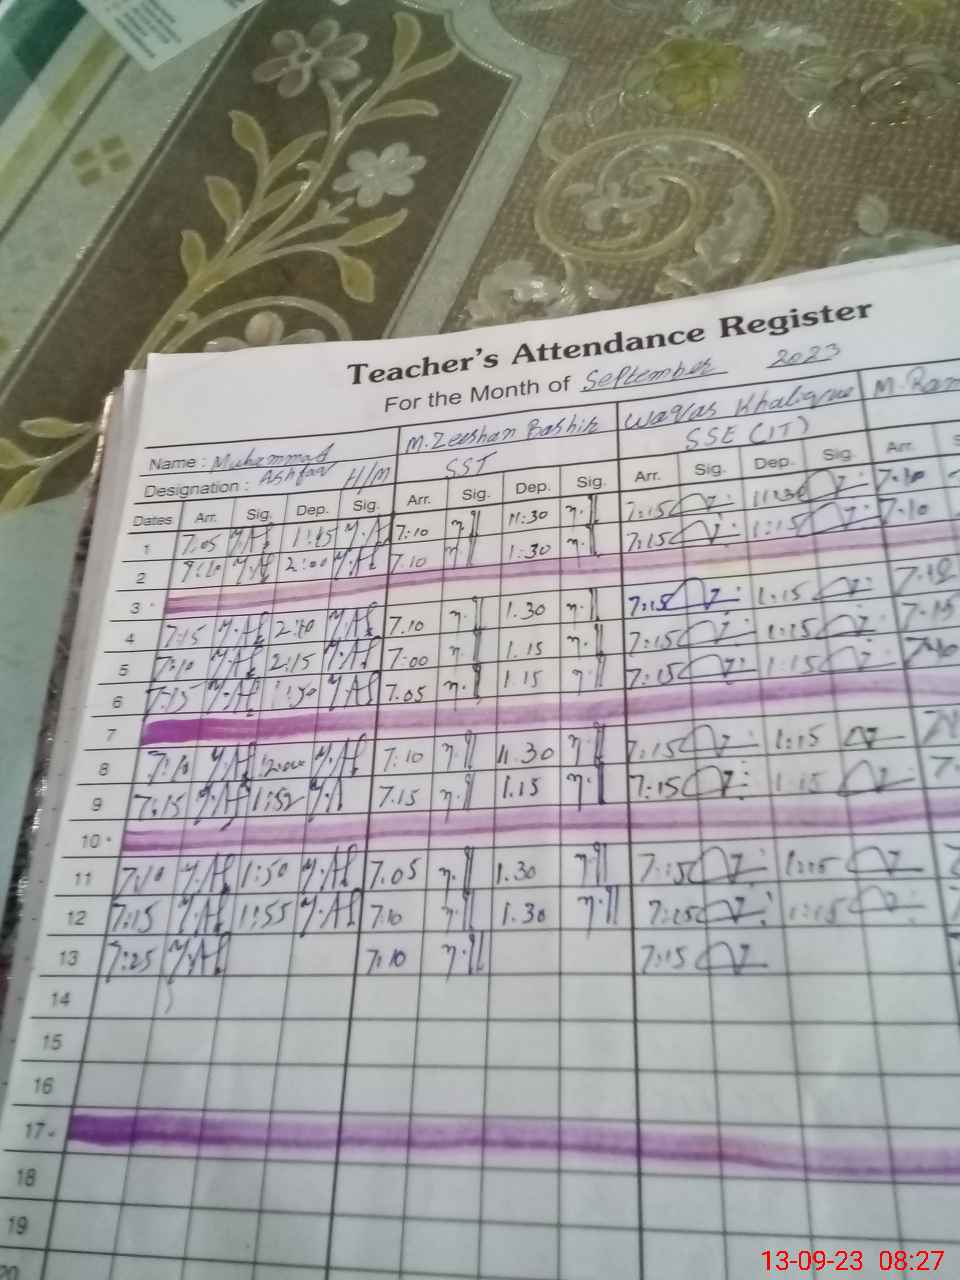 Teacher's Attendance Register
For the Month of September 2023
Name : Muhammad Ashfaq M.Zeeshan Bashir Waqas Khalique M.Ram
Designation : H/M SST SSE (IT)
Dates Arr. Sig. Dep. Sig. Arr. Sig. Dep. Sig. Arr. Sig. Dep. Sig. Arr. S
1 7:05 M.Af 1:45 M.Af 7:10 11:30 7:15 11:30 7:10
2 M.Af 2:00 M.Af 7.10 1:30 7:15 1:15 7:10
3
4 7:15 M.Af M.Af 7.10 1.30 7:15 1.15
5 7:10 M.Af 2:15 M.Af 7:00 1.15 7:15 1:15 7:15
6 7:15 M.Af 1:50 M.Af 7.05 1.15 7:15 1:15
7
8 7:10 M.Af M.Af 7:10 11.30 7:15 1:15
9 7:15 M.Af 1:52 M.A 7.15 1.15 7:15 1:15
10
11 7:10 M.Af 1:50 M.Af 7.05 1.30 7:15 1:15
12 7:15 M.Af 1:55 M.Af 7:10 1.30 7:15 1:15
13 7:25 M.Af 7:10 7:15
14
15
16
17
18
19
20
13-09-23 08:27